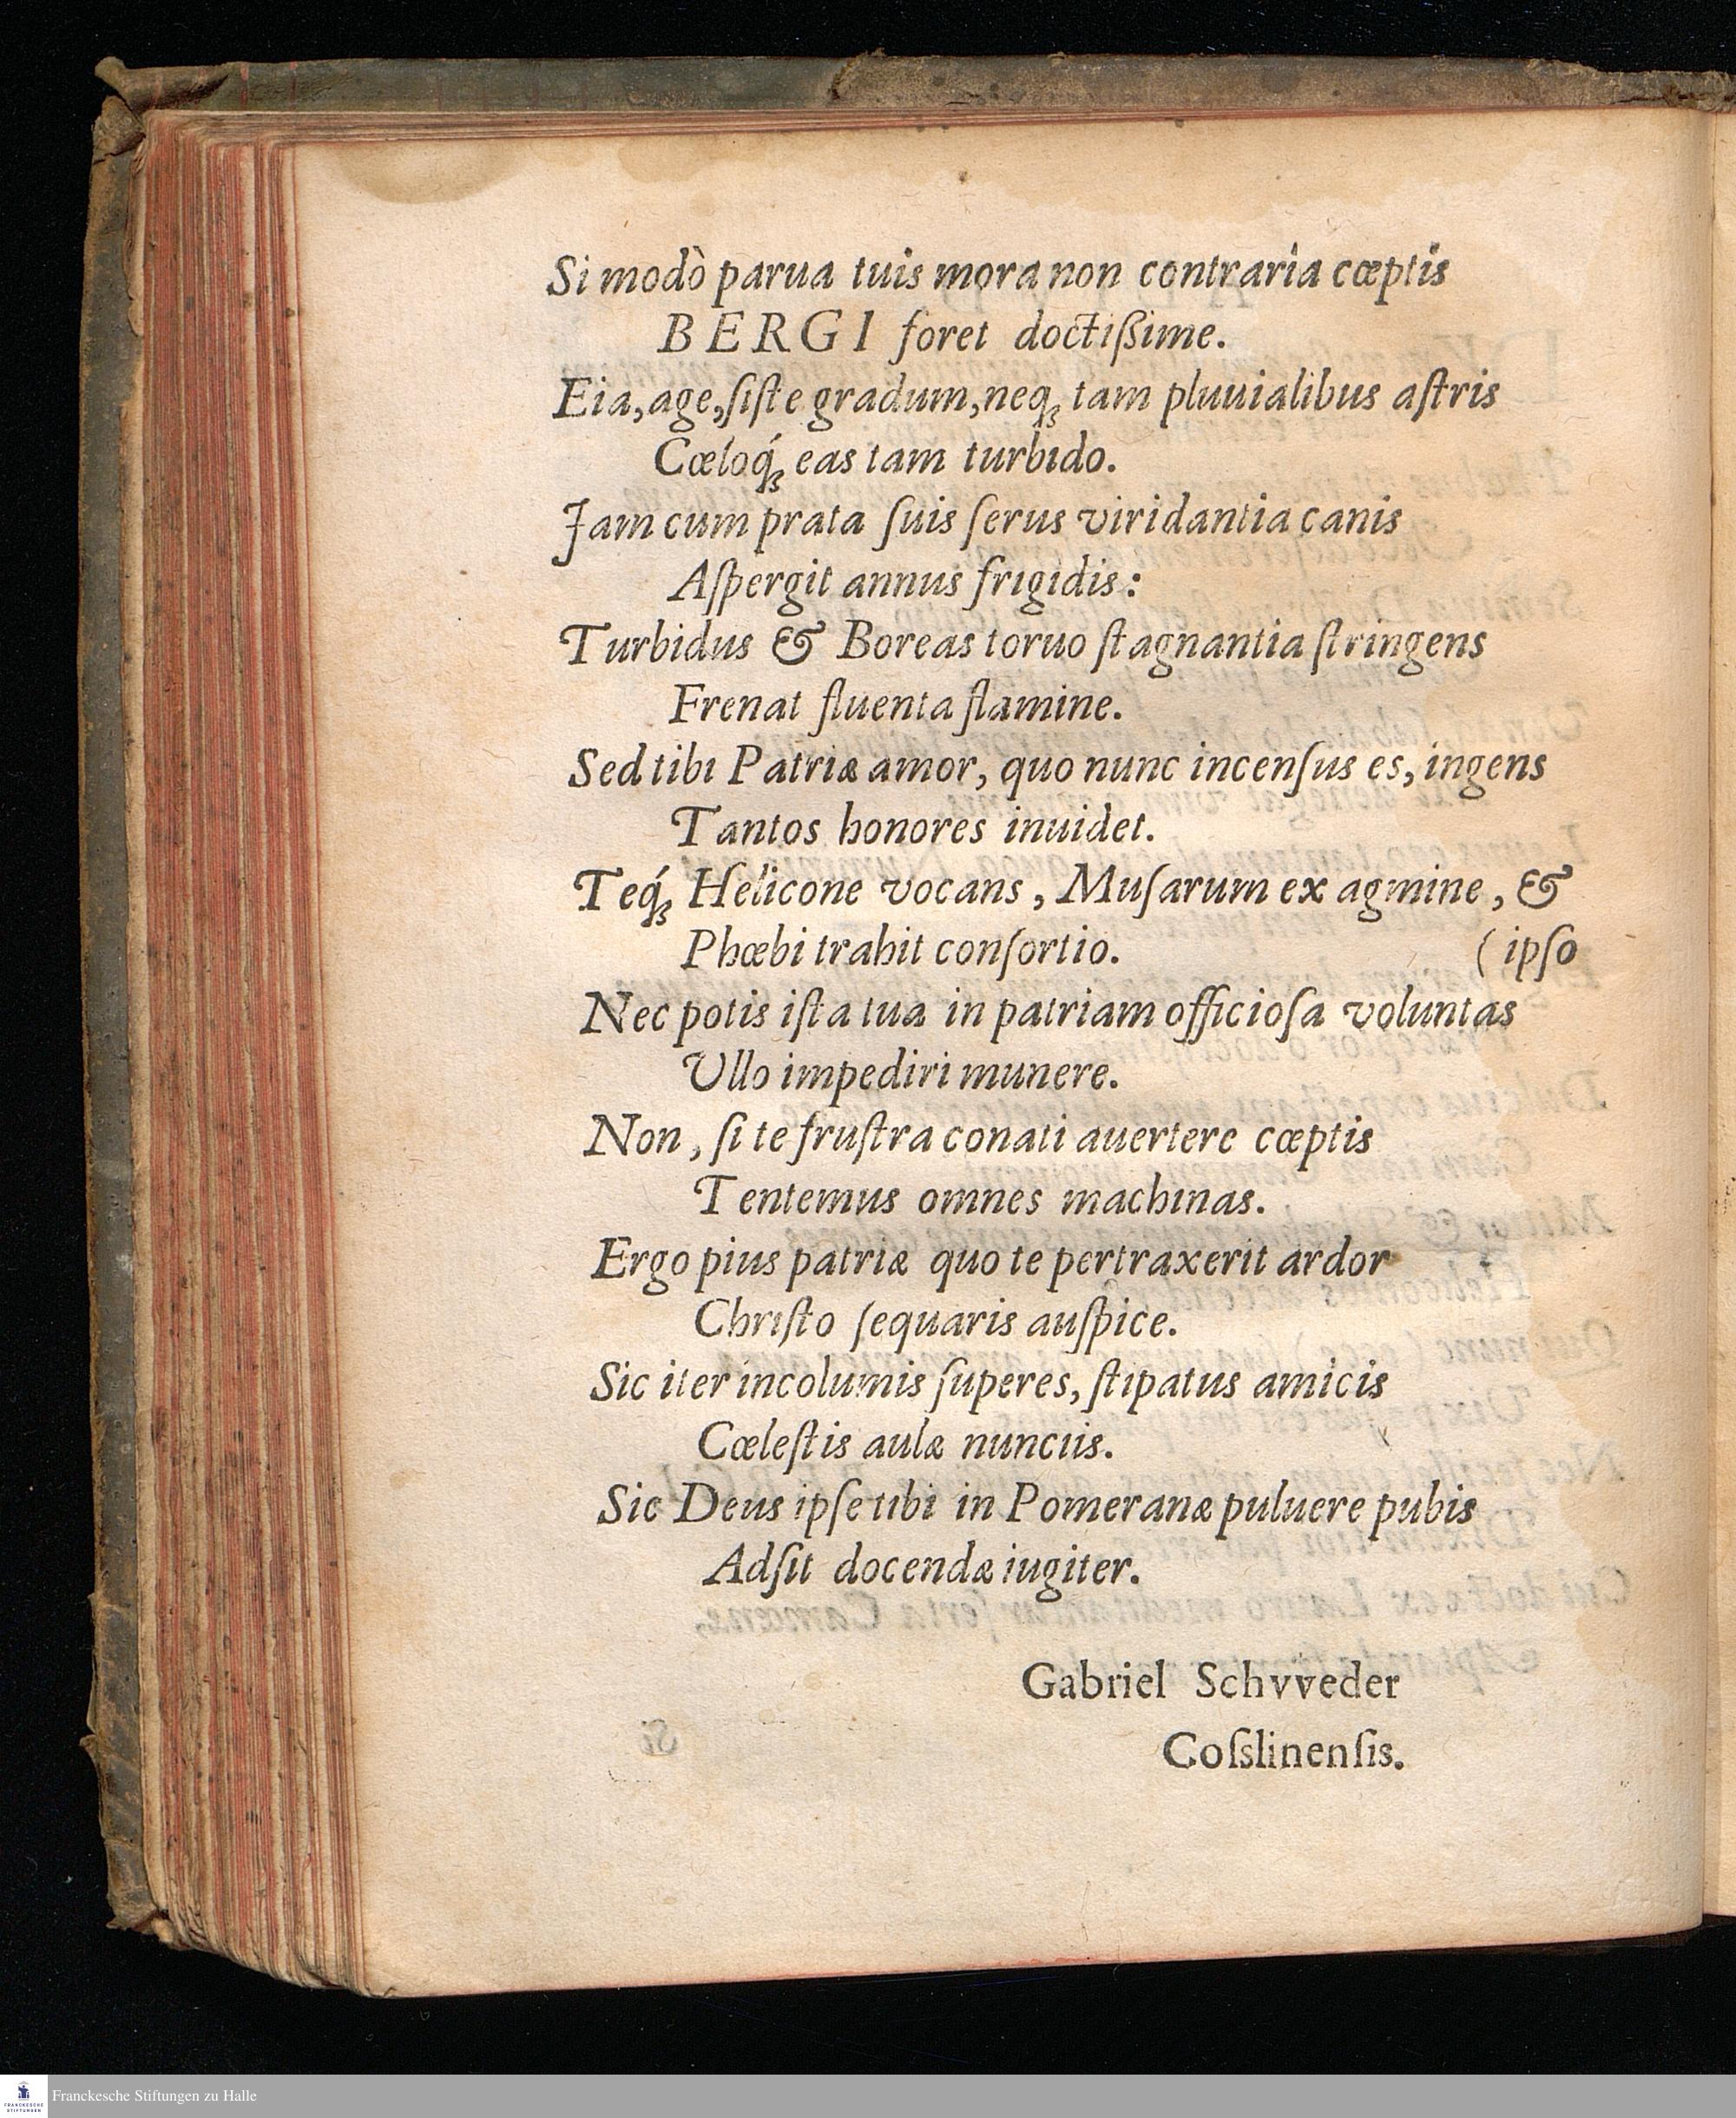 Si modò parua tuis mora non contraria cœptis
BERGI foret doctißime.
Eia, age, ſiſte gradum, neq; tam pluuialibus aſtris
Cœloq́; eas tam turbido.
Jam cum prata ſuis ſerus viridantia canis
Aſpergit annus frigidis:
Turbidus & Boreas toruo ſtagnantia ſtringens
Frenat fluenta flamine.
Sed tibi Patriæ amor, quo nunc incenſus es, ingens
Tantos honores inuidet.
Teq́; Helicone vocans, Muſarum ex agmine, &
Phœbi trahit conſortio. (ipſo
Nec potis iſta tua in patriam officioſa voluntas
Ullo impediri munere.
Non, ſi te fruſtra conati auertere cœptis
Tentemus omnes machinas.
Ergo pius patriæ quo te pertraxerit ardor
Chriſto ſequaris auſpice.
Sic iter incolumis ſuperes, ſtipatus amicis
Cœleſtis aulæ nunciis.
Sic Deus ipſe tibi in Pomeranæ puluere pubis
Adſit docendæ iugiter.
Gabriel Schvveder
Coſslinenſis.
Franckesche Stiftungen zu Halle
FRANCKESCHE
STIFTUNGEN